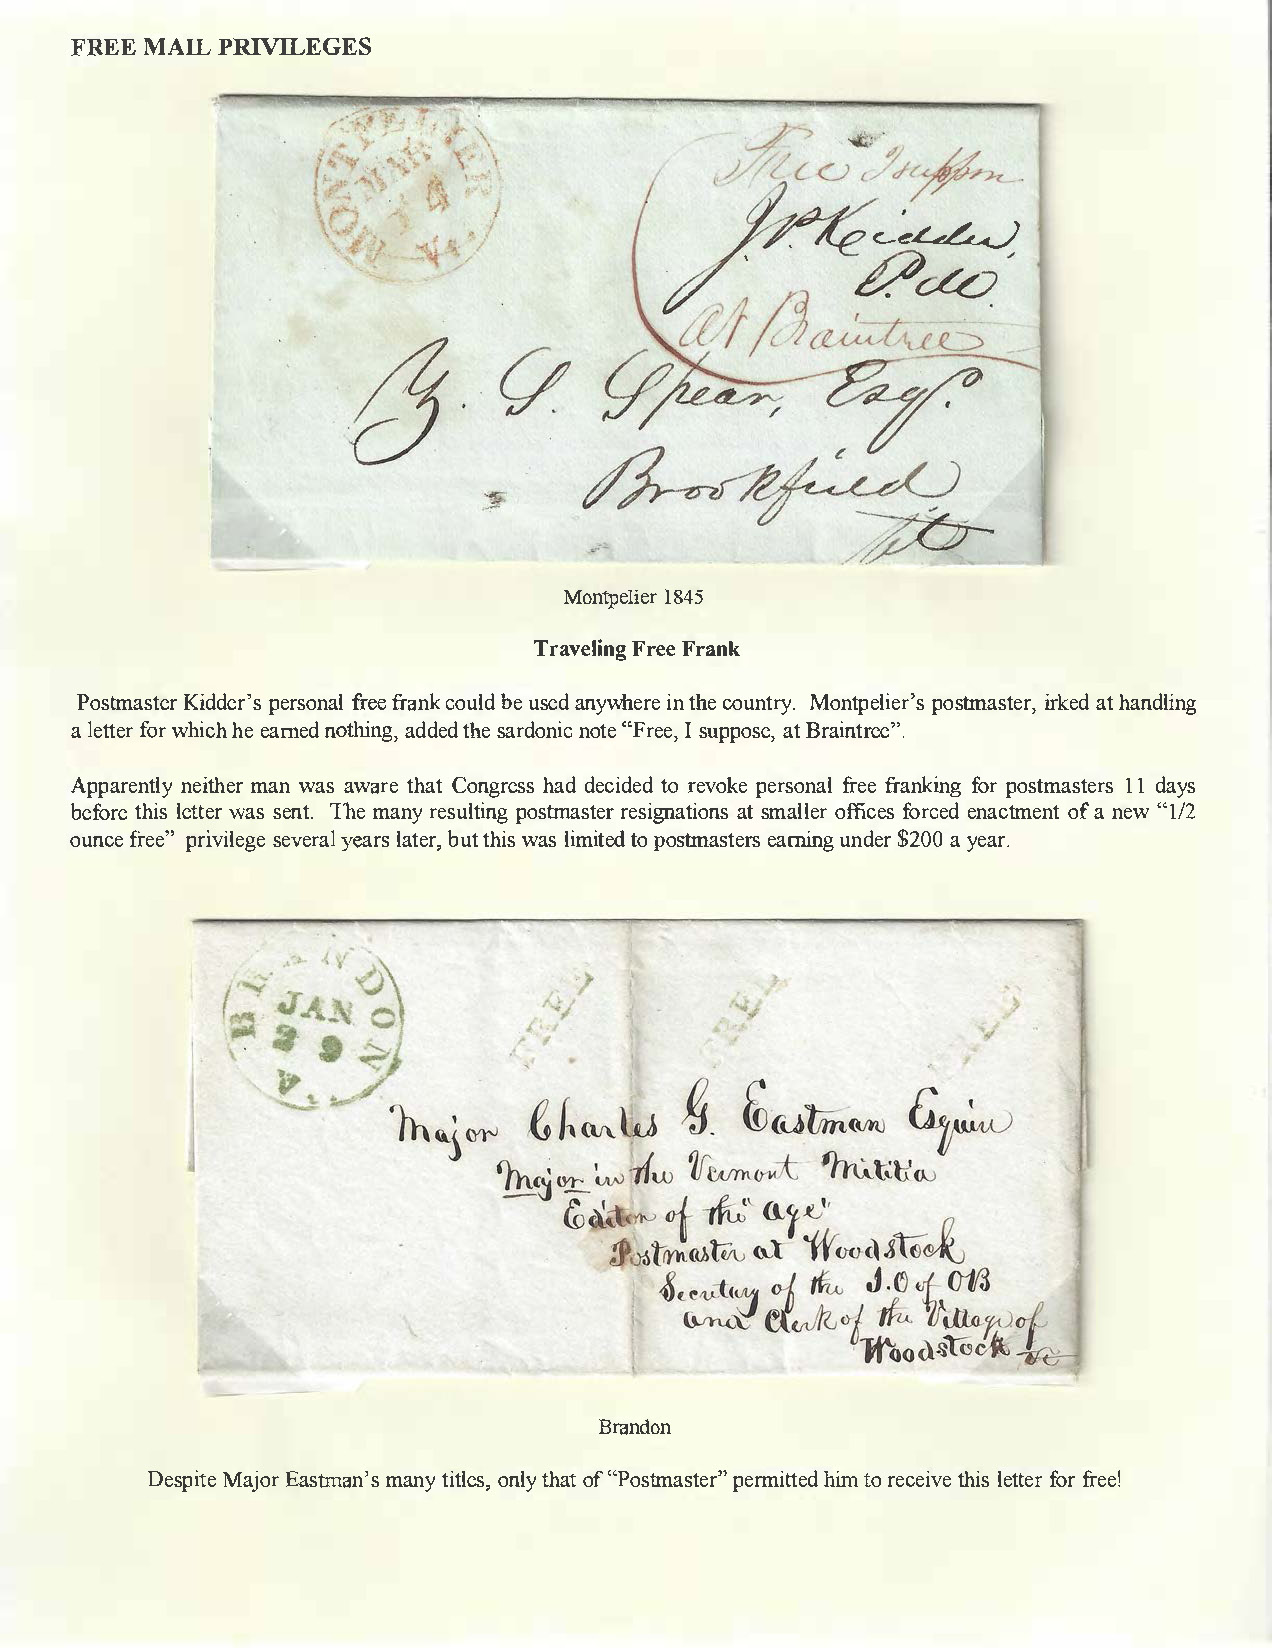 FREE MAIL PRIVILEGES
MONTPELIER
MAR
14
Vt.
Free I suppose
J.P. Kidder,
P.M.
at Braintree
Z. S. Spear, Esqr.
Brookfield
Vt
Montpelier 1845
Traveling Free Frank
Postmaster Kidder's personal free frank could be used anywhere in the country. Montpelier's postmaster, irked at handling
a letter for which he earned nothing, added the sardonic note “Free, I suppose, at Braintree”.
Apparently neither man was aware that Congress had decided to revoke personal free franking for postmasters 11 days
before this letter was sent. The many resulting postmaster resignations at smaller offices forced enactment of a new “1/2
ounce free” privilege several years later, but this was limited to postmasters earning under $200 a year.
BRANDON
JAN
29
Vt.
FREE FREE FREE
Major Charles G. Eastman Esquire
Major in the Vermont Militia
Editor of the "Age"
Postmaster at Woodstock
Secretary of the I.O of OB
and Clerk of the Village of
Woodstock Vt
Brandon
Despite Major Eastman's many titles, only that of “Postmaster” permitted him to receive this letter for free!